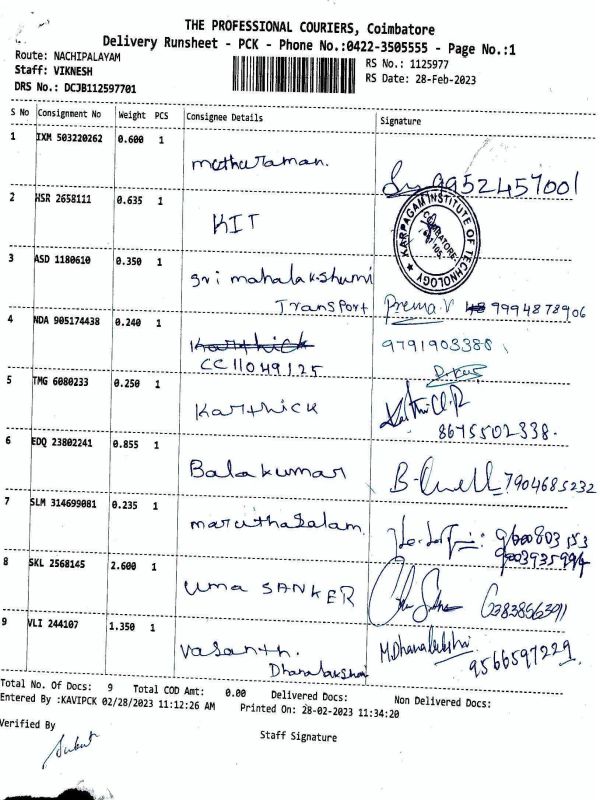 THE PROFESSIONAL COURIERS, Coimbatore
Delivery Runsheet - PCK - Phone No.:0422-3505555 - Page No.:1
Route: NACHIPALAYAM
RS No.: 1125977
Staff: VIKNESH
RS Date: 28-Feb-2023
DRS No.: DCJB112597701
S No Consignment No Weight PCS Consignee Details Signature
1 IXM 503220262 0.600 1
muthuraman.
9952457001
2 HSR 2658111 0.635 1
KIT
KARPAGAM INSTITUTE OF TECHNOLOGY
COIMBATORE
3 ASD 1180610 0.350 1
sri mahalakshumi
Transport Prema.V 9994878906
4 NDA 905174438 0.240 1
Karthick 9791903388
CC11049125
5 TMG 6080233 0.250 1
Karthick
8675502338.
6 EDQ 23802241 0.855 1
Balakumar 7904685232
7 SLM 314699081 0.235 1
maruthasalam
8 SKL 2568145 2.600 1
uma SANKER
9 VLI 244107 1.350 1
Vasanth. M.Dhanalakshmi
Dhanalakshmi 9566597229
Total No. Of Docs: 9 Total COD Amt: 0.00 Delivered Docs: Non Delivered Docs:
Entered By :KAVIPCK 02/28/2023 11:12:26 AM Printed On: 28-02-2023 11:34:20
Verified By
Staff Signature